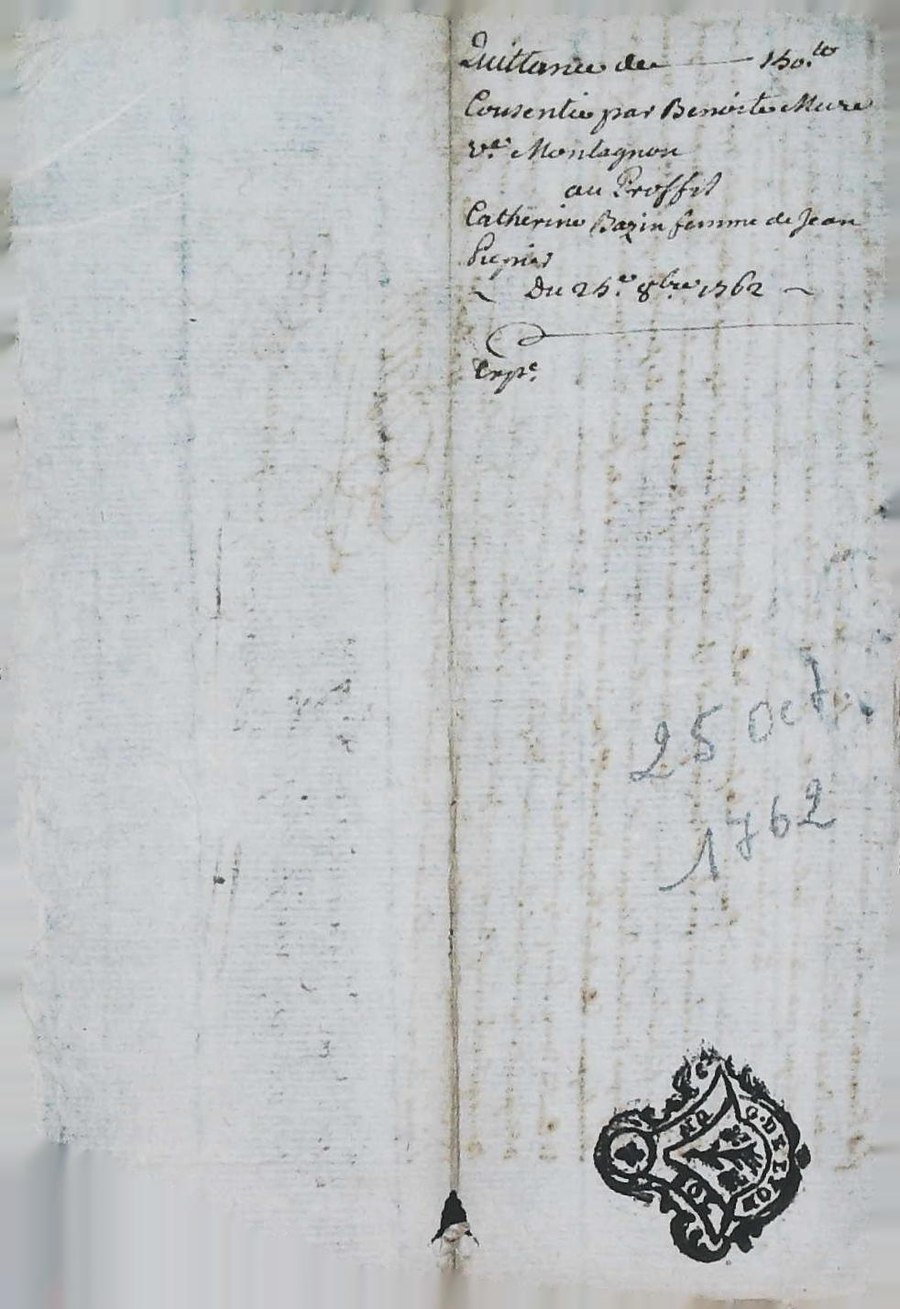 Quittance de 150.ᵗᵗ
Consentie par Benoiste Mure
v.ᵉ Montagnon
au Proffit
Catherine Bazin femme de Jean
Du 25.ᵉ 8bre 1762
Exp.ᵉ
25 Oct.
1762
G. DE LION